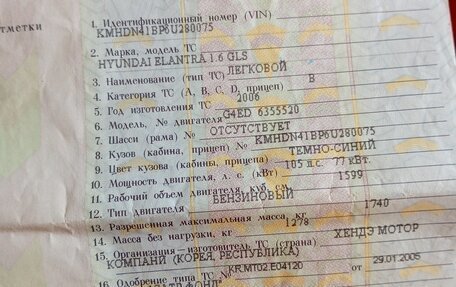 отметки
1. Идентификационный номер (VIN)
KMHDN41BP6U280075
2. Марка, модель ТС
HYUNDAI ELANTRA 1.6 GLS
3. Наименование (тип ТС) ЛЕГКОВОЙ
4. Категория ТС (А, В, С, D, прицеп) B
5. Год изготовления ТС 2006
6. Модель, № двигателя G4ED 6355520
7. Шасси (рама) № ОТСУТСТВУЕТ
8. Кузов (кабина, прицеп) № KMHDN41BP6U280075
9. Цвет кузова (кабины, прицепа) ТЕМНО-СИНИЙ
10. Мощность двигателя, л. с. (кВт) 105 л.с. 77 кВт.
11. Рабочий объем двигателя, куб. см. 1599
12. Тип двигателя БЕНЗИНОВЫЙ
13. Разрешенная максимальная масса, кг 1740
14. Масса без нагрузки, кг 1278
15. Организация—изготовитель ТС (страна) ХЕНДЭ МОТОР
КОМПАНИ (КОРЕЯ, РЕСПУБЛИКА)
16. Одобрение типа ТС № KR.MT02.E04120 от 29.01.2005